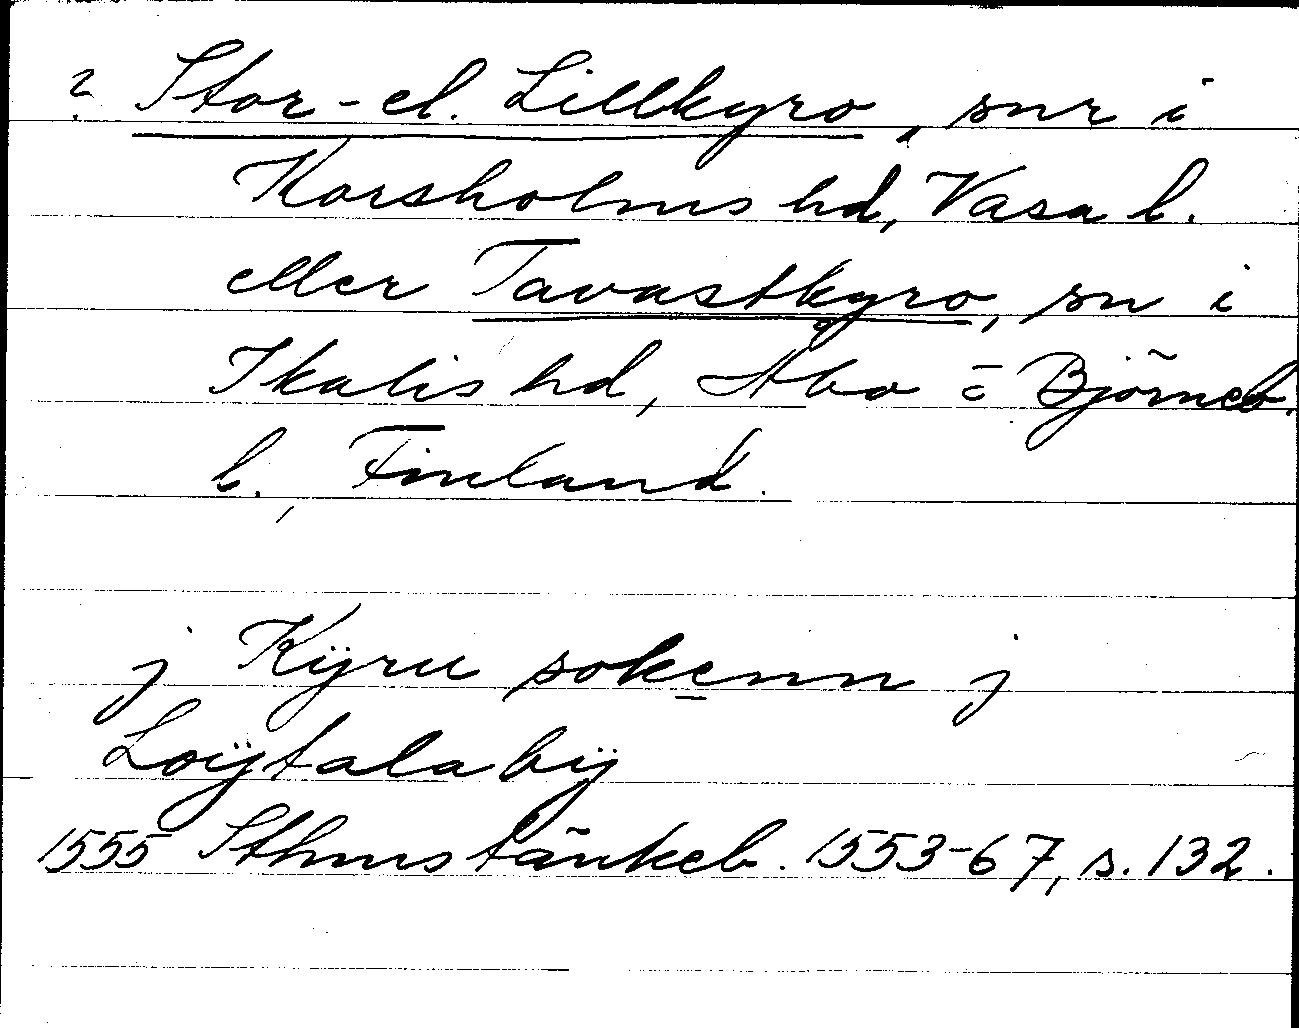 ? Stor- el. Lillkyro, snr i
Korsholms hd, Vasa l.
eller Tavastkyro, sn i
Ikalis hd, Åbo o Björneb.
l., Finland.
j Kÿru sokenn j
Loÿtala bÿ
1555 Sthms tänkeb. 1553-67, s. 132.